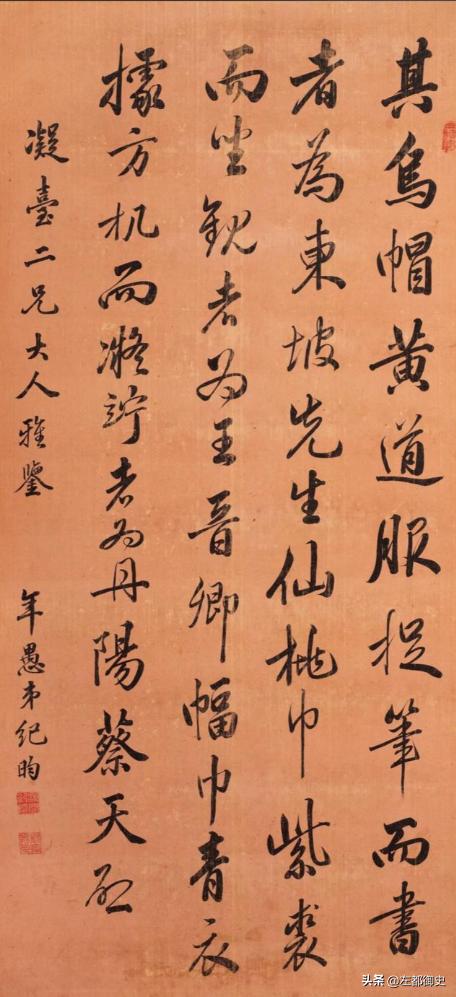 其烏帽黃道服捉筆而書
者為東坡先生仙桃巾紫裘
而坐觀者為王晉卿幅巾青衣
據方机而凝竚者為丹陽蔡天啟
凝臺二兄大人雅鑒
年愚弟紀昀
头条 @左都御史